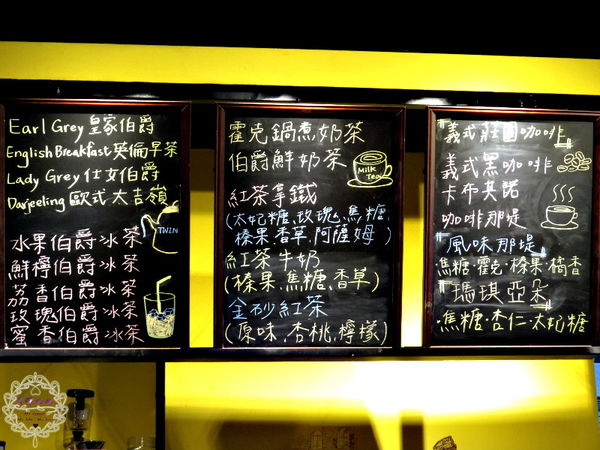 Earl Grey 皇家伯爵
English Breakfast 英倫早茶
Lady Grey 仕女伯爵
Darjeeling 歐式大吉嶺
TWIN
水果伯爵冰茶
鮮檸伯爵冰茶
荔香伯爵冰茶
玫瑰伯爵冰茶
蜜香伯爵冰茶
霍克鍋煮奶茶
伯爵鮮奶茶
Milk Tea
紅茶拿鐵
(太妃糖.玫瑰.焦糖
榛果香草.阿薩姆)
紅茶牛奶
(榛果.焦糖.香草)
金砂紅茶
(原味.杏桃.檸檬)
義式莊園咖啡
義式黑咖啡
卡布其諾
咖啡那堤
風味那堤
焦糖·霍克·榛果·橘香
瑪琪亞朵
焦糖·杏仁·太妃糖